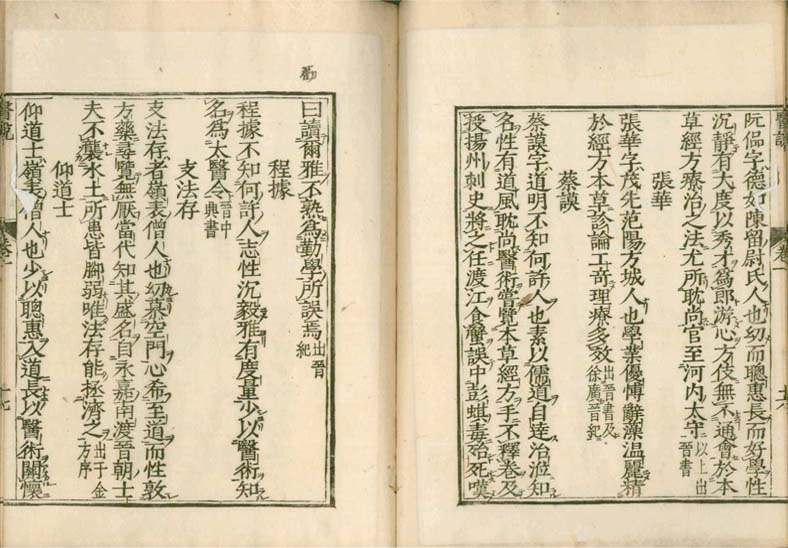 阮侃字德如陳留尉氏人也幼而聰惠長而好學性
沉靜有大度以秀才爲郎游心方伎無不通會於本
草經方療治之法尤所耽尚官至河內太守以上出晉書
張華
張華字茂先范陽方城人也學業優博辭藻温麗精
於經方本草診論工奇理療多效出晉書及徐廣晉紀
蔡謨
蔡謨字道明不知何許人也素以儒道自達治涖知
名性有道風耽尚醫術嘗覽本草經方手不釋卷及
授揚州刺史將之任渡江食蟹誤中彭蜞毒殆死嘆
曰讀爾雅不熟爲勤學所誤焉出晉紀
程據
程據不知何許人志性沉毅雅有度量少以醫術知
名爲太醫令晉中典書
支法存
支法存者嶺表僧人也幼慕空門心希至道而性敦
方藥尋覽無厭當代知其盛名自永嘉南渡晉朝士
夫不襲水土所患皆脚弱唯法存能拯濟之出千金方序
仰道士
仰道士嶺表僧人也少以聰惠入道長以醫術關懷